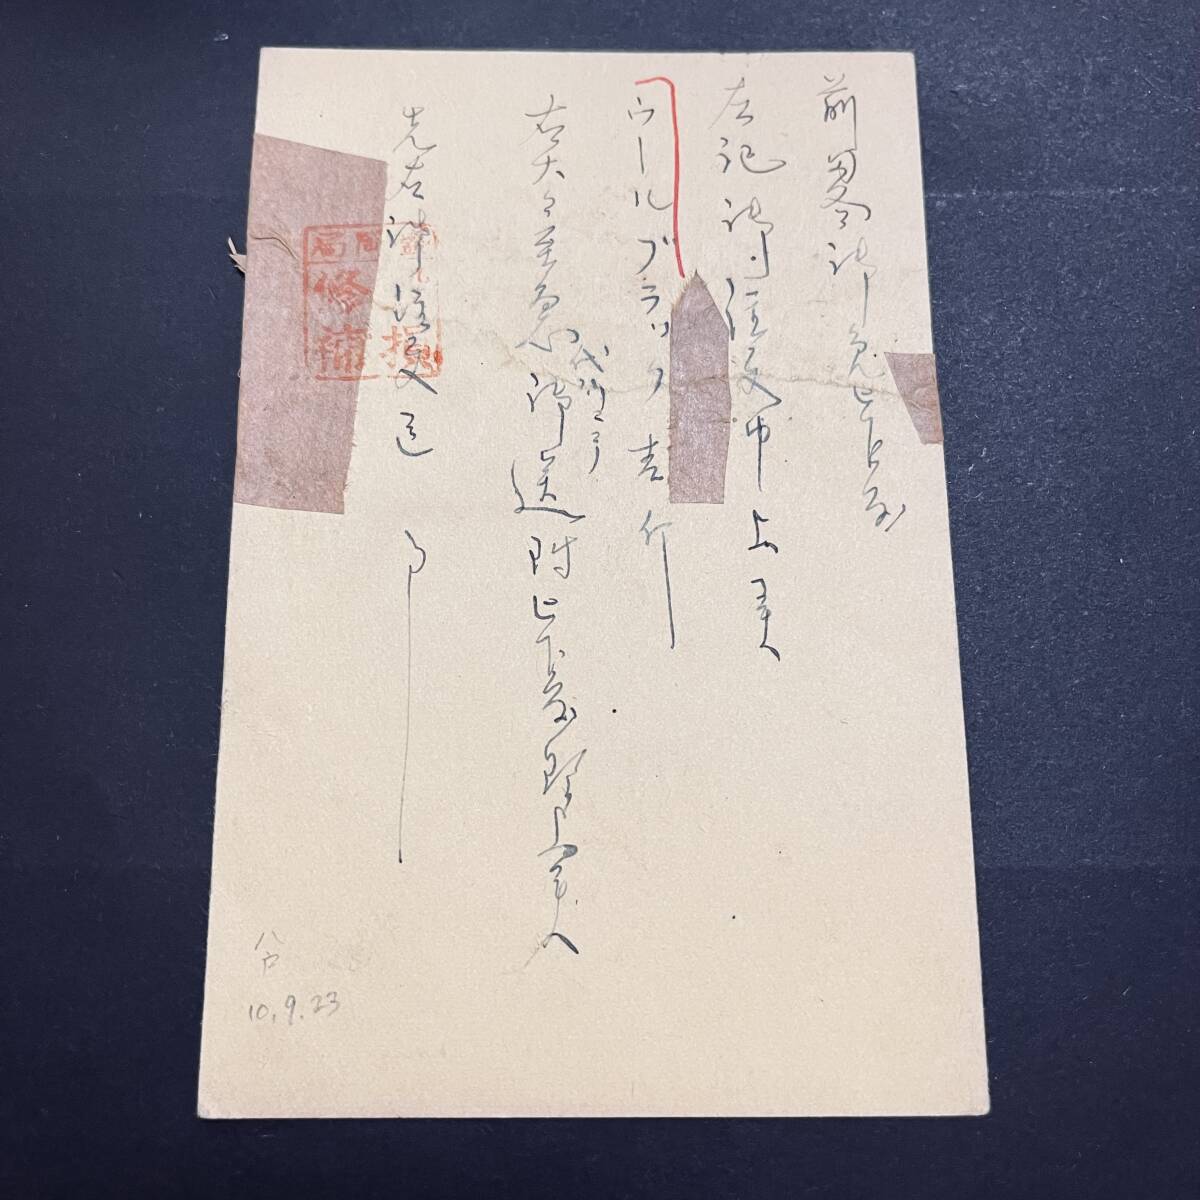 前略御免被下度
左記御注文申上候
ウールブラック 壱斤
右大々至急御送附被下度願上候
代引ニテ
先右御注文迄
損
修補
八戸
10.9.23